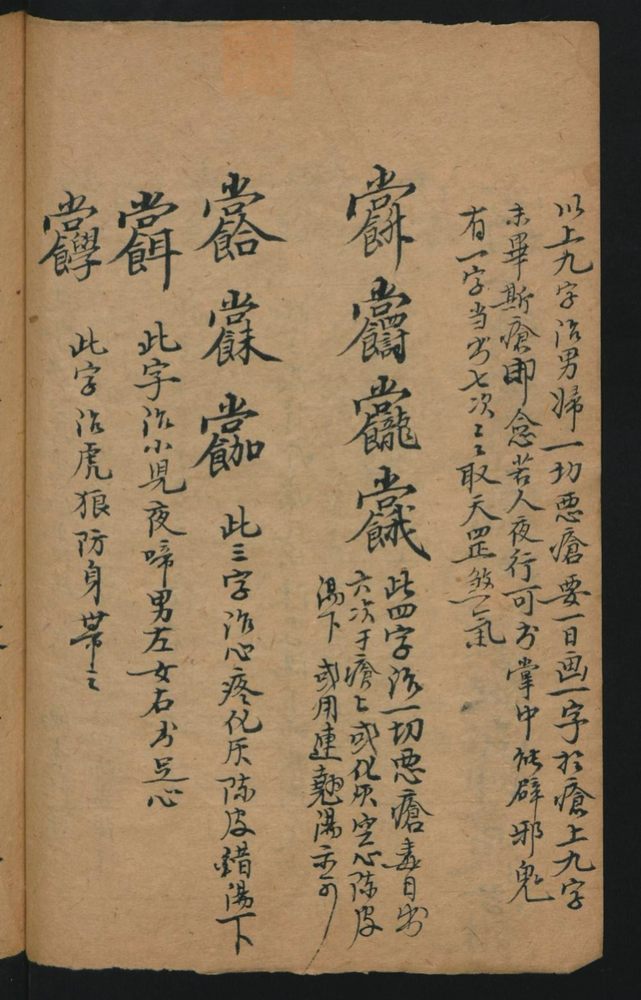 以上九字治男婦一切悪瘡要一日画一字於瘡上九字
未畢斯瘡即念若人夜行可书掌中能辟邪鬼
有一字当书七次二二取天罡煞氣
此四字治一切悪瘡毒日书
六次于瘡上或化灰空心陈皮
湯下 或用連翹湯亦可
此三字治心疼化灰陈皮錯湯下
此字治小児夜啼男左女右书足心
此字治虎狼防身帶之